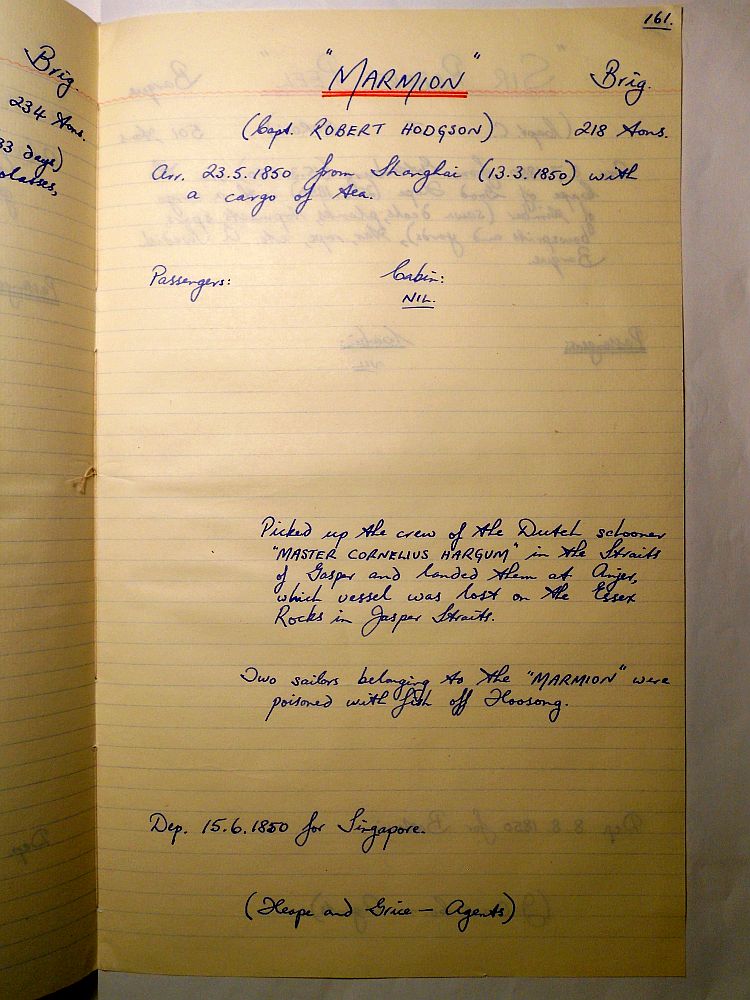 Brig.
234 tons.
33 days)
olasses,
161.
"MARMION" Brig.
(Capt. ROBERT HODGSON) 218 tons.
Arr. 23.5.1850 from Shanghai (13.3.1850) with
a cargo of tea.
Passengers: Cabin:
NIL.
Picked up the crew of the Dutch schooner
"MASTER CORNELIUS HARGUM" in the Straits
of Gasper and landed them at Anjer,
which vessel was lost on the Essex
Rocks in Jasper Straits.
Two sailors belonging to the "MARMION" were
poisoned with fish off Hoosong.
Dep. 15.6.1850 for Singapore.
(Heape and Grice - Agents)